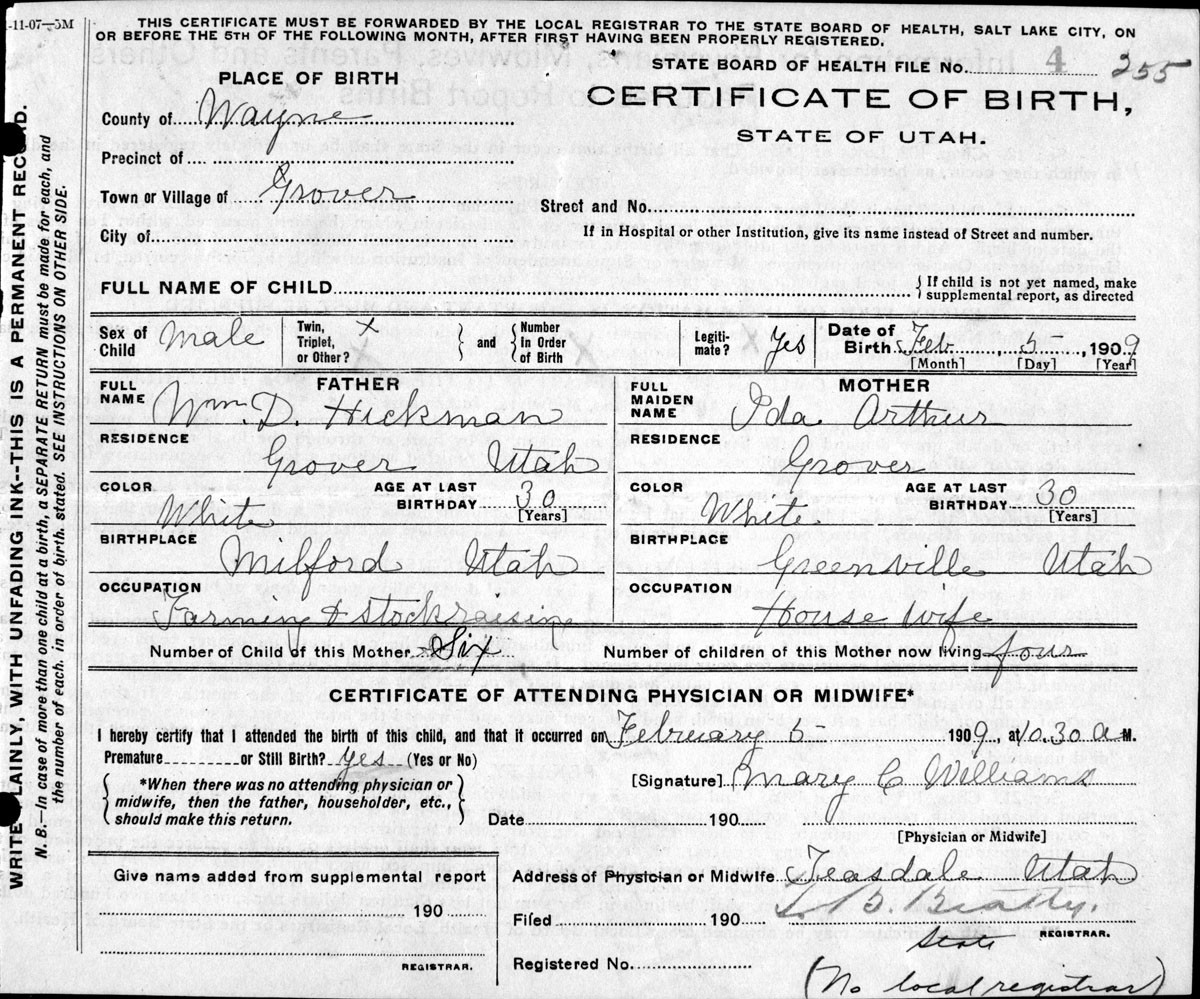 -11-07—5M
THIS CERTIFICATE MUST BE FORWARDED BY THE LOCAL REGISTRAR TO THE STATE BOARD OF HEALTH, SALT LAKE CITY, ON
OR BEFORE THE 5TH OF THE FOLLOWING MONTH, AFTER FIRST HAVING BEEN PROPERLY REGISTERED.
STATE BOARD OF HEALTH FILE No. 4 255
PLACE OF BIRTH
CERTIFICATE OF BIRTH,
STATE OF UTAH.
County of Wayne
Precinct of
Town or Village of Grover
Street and No.
City of
If in Hospital or other Institution, give its name instead of Street and number.
FULL NAME OF CHILD { If child is not yet named, make
supplemental report, as directed
Sex of Child Male Twin, Triplet, or Other? x } and { Number In Order of Birth Legiti-mate? Yes Date of Birth Feb, 5, 1909
[Month] [Day] [Year]
FATHER
FULL NAME Wm. D. Hickman
RESIDENCE
Grover Utah
COLOR White AGE AT LAST BIRTHDAY 30 [Years]
BIRTHPLACE
Milford Utah
OCCUPATION
Farming & stockraising
MOTHER
FULL MAIDEN NAME Ida Arthur
RESIDENCE
Grover
COLOR White AGE AT LAST BIRTHDAY 30 [Years]
BIRTHPLACE
Greenville Utah
OCCUPATION
House wife
Number of Child of this Mother Six Number of children of this Mother now living four
CERTIFICATE OF ATTENDING PHYSICIAN OR MIDWIFE*
I hereby certify that I attended the birth of this child, and that it occurred on February 5 1909, at 10.30 a M.
Premature or Still Birth? yes (Yes or No)
{ *When there was no attending physician or
midwife, then the father, householder, etc.,
should make this return. }
[Signature] Mary C Williams
Date 190
[Physician or Midwife]
Give name added from supplemental report
190
REGISTRAR.
Address of Physician or Midwife Teasdale Utah
Filed 190 T. B. Beatty.
State REGISTRAR.
Registered No.
(No local registrar)
WRITE PLAINLY, WITH UNFADING INK--THIS IS A PERMANENT RECORD.
N. B.—In case of more than one child at a birth, a SEPARATE RETURN must be made for each, and
the number of each, in order of birth, stated. SEE INSTRUCTIONS ON OTHER SIDE.